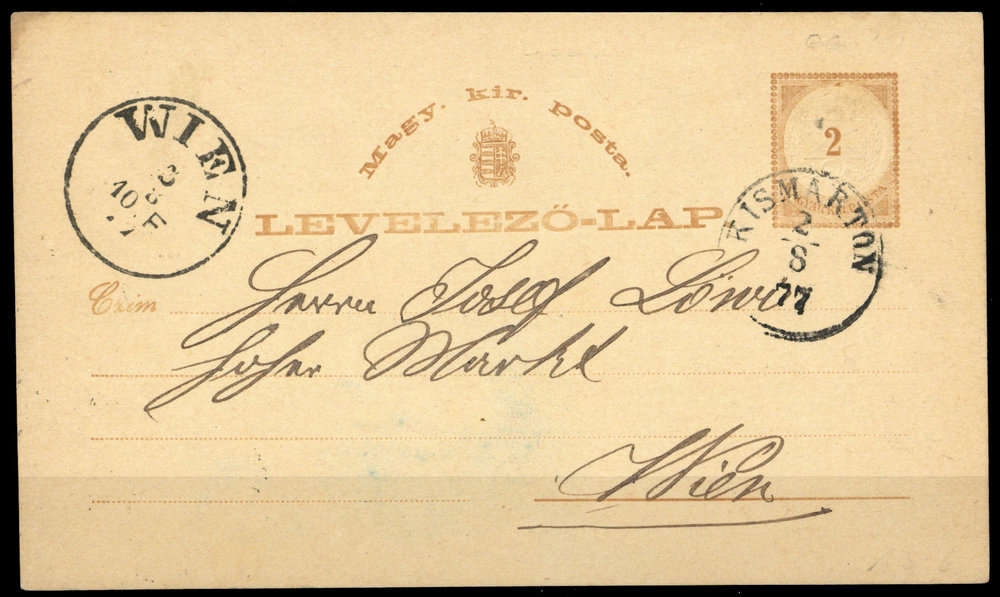 Magy. kir. posta.
2
WIEN
3
8
10 F
LEVELEZŐ-LAP
KISMARTON
2
8
77
Czim
Herrn Josef Löwe
Hoher Markt
Wien